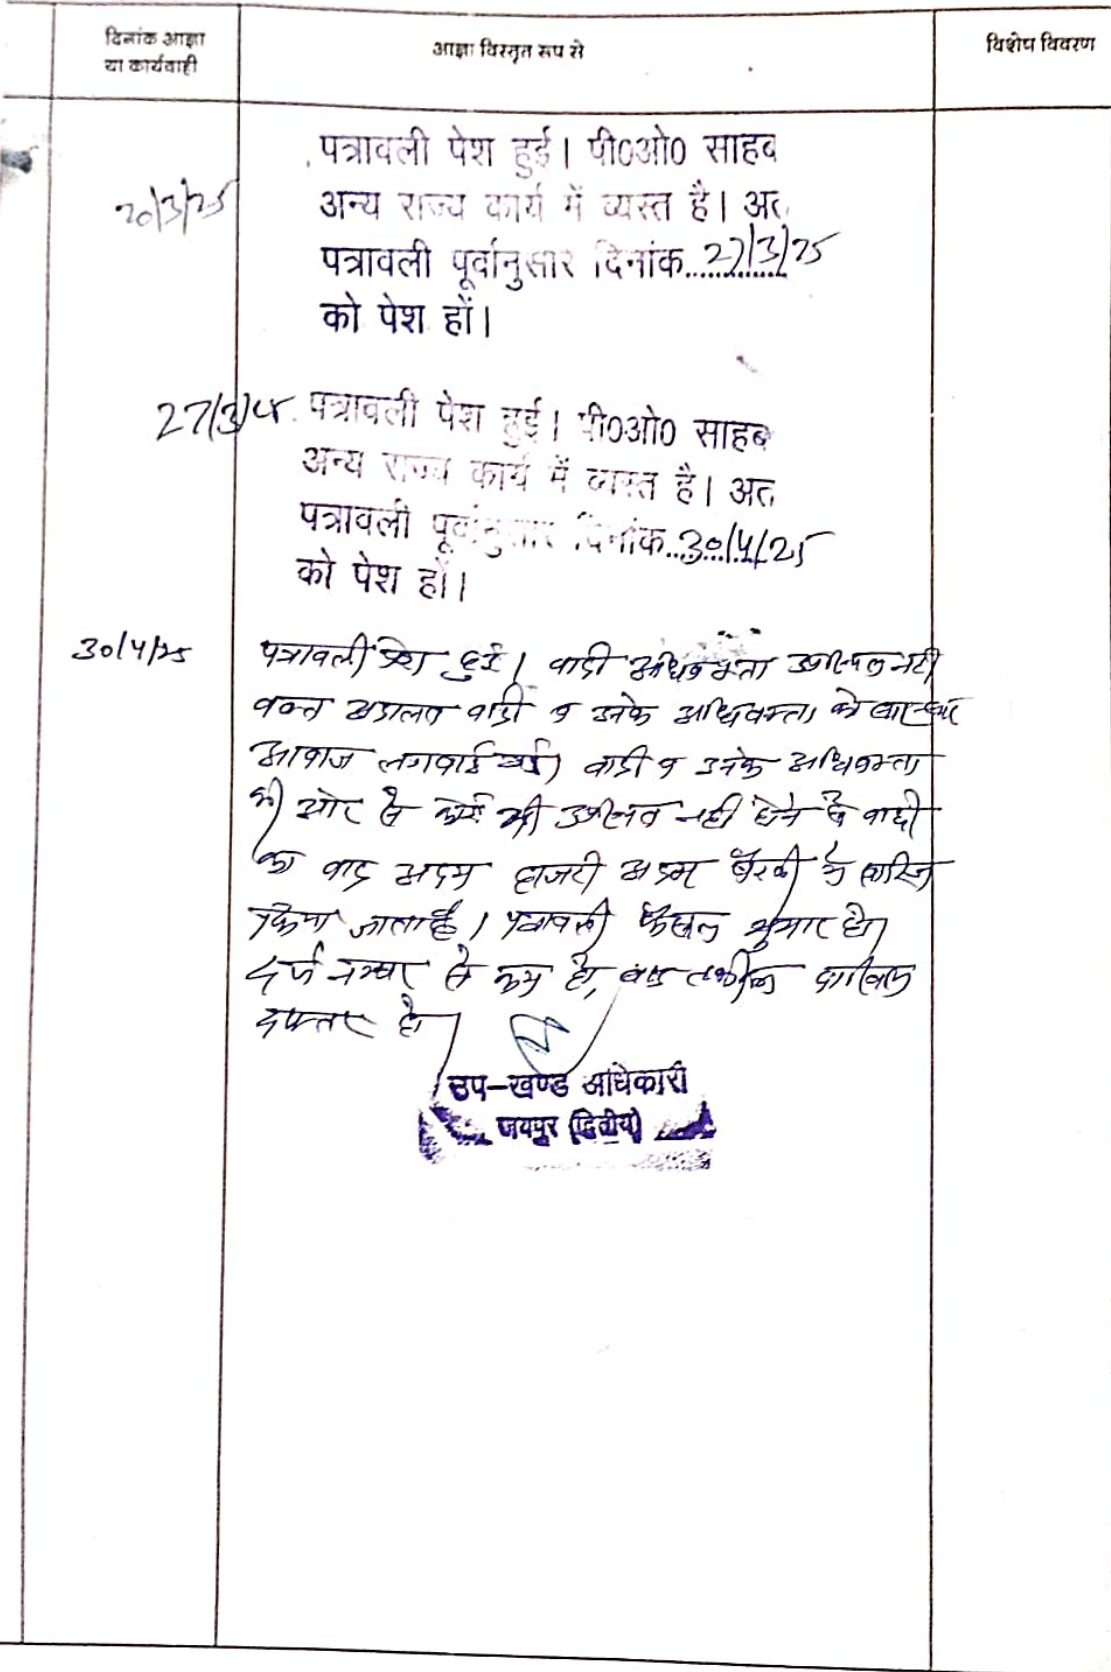 दिनांक आज्ञा
या कार्यवाही
आज्ञा विस्तृत रूप से
विशेष विवरण
20/3/25
पत्रावली पेश हुई। पी0ओ0 साहब
अन्य राज्य कार्य में व्यस्त है। अत
पत्रावली पूर्वानुसार दिनांक 27/3/25
को पेश हों।
27/3/25 पत्रावली पेश हुई। पी0ओ0 साहब
अन्य राज्य कार्य में व्यस्त है। अत
पत्रावली पूर्वानुसार दिनांक 30/4/25
को पेश हों।
30/4/25
पत्रावली पेश हुई। वादी अधिवक्ता उपस्थित नहीं
वक्त अदालत वादी व उनके अधिवक्ता को बार-बार
आवाज लगवाई गई। वादी व उनके अधिवक्ता
की ओर से कोई भी उपस्थित नहीं होने से वादी
का वाद अदम हाजरी अदम पैरवी में खारिज
किया जाता है। पत्रावली फैसल शुमार हो।
दर्ज नम्बर से कम हो, बाद तकमील दाखिल
दफ्तर हो।
उप-खण्ड अधिकारी
जयपुर (द्वितीय)